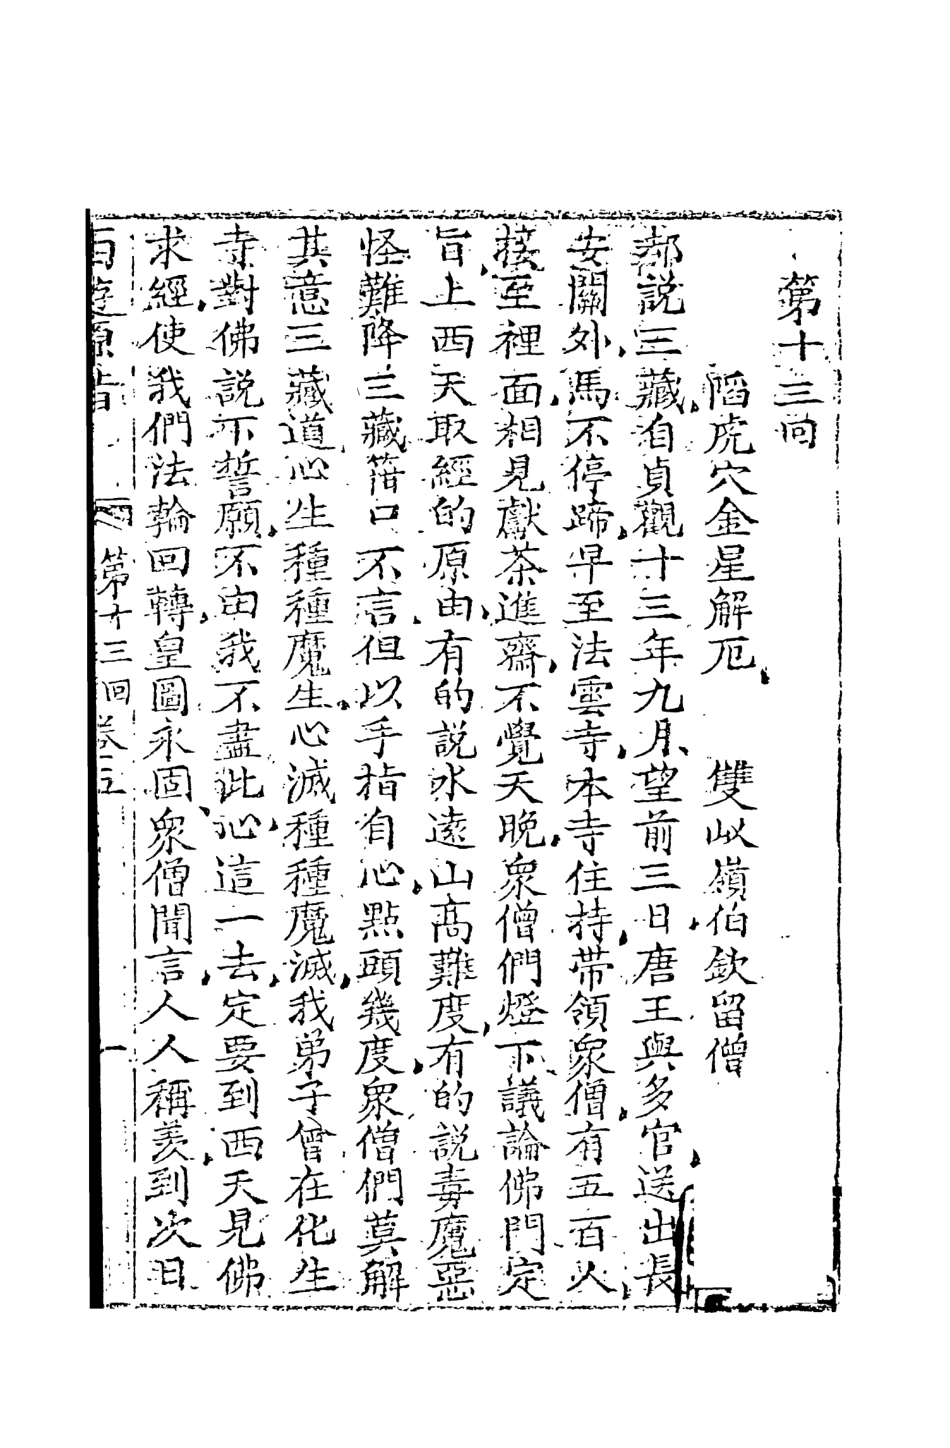 第十三回
陷虎穴金星解厄　雙㕥嶺伯欽留僧
却說三藏自貞觀十三年九月望前三日唐王與多官送出長
安關外馬不停蹄早至法雲寺本寺住持帶領眾僧有五百人
接至裡面相見獻茶進齋不覺天晚眾僧們燈下議論佛門定
旨上西天取經的原由有的說水遠山高難度有的說毒魔惡
怪難降三藏箝口不言但以手指自心點頭幾度眾僧們莫解
其意三藏道心生種種魔生心滅種種魔滅我弟子曾在化生
寺對佛說下誓願不由我不盡此心這一去定要到西天見佛
求經使我們法輪回轉皇圖永固眾僧聞言人人稱羨到次日
西遊原旨　第十三回　卷三　一